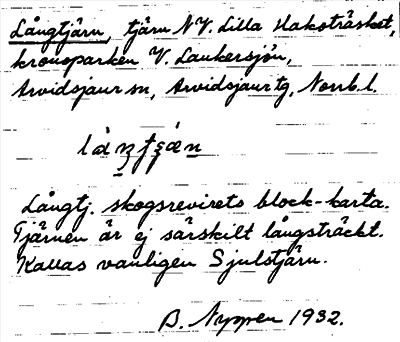 Långtjärn, tjärn NV. Lilla Hakoträsket,
kronoparken V. Laukersjön,
Arvidsjaur sn, Arvidsjaur tg, Norrb. l.
Långtj. skogsrevirets block-karta.
Tjärnen är ej särskilt långsträckt.
Kallas vanligen Sjulstjärn.
B. Nyppen 1932.